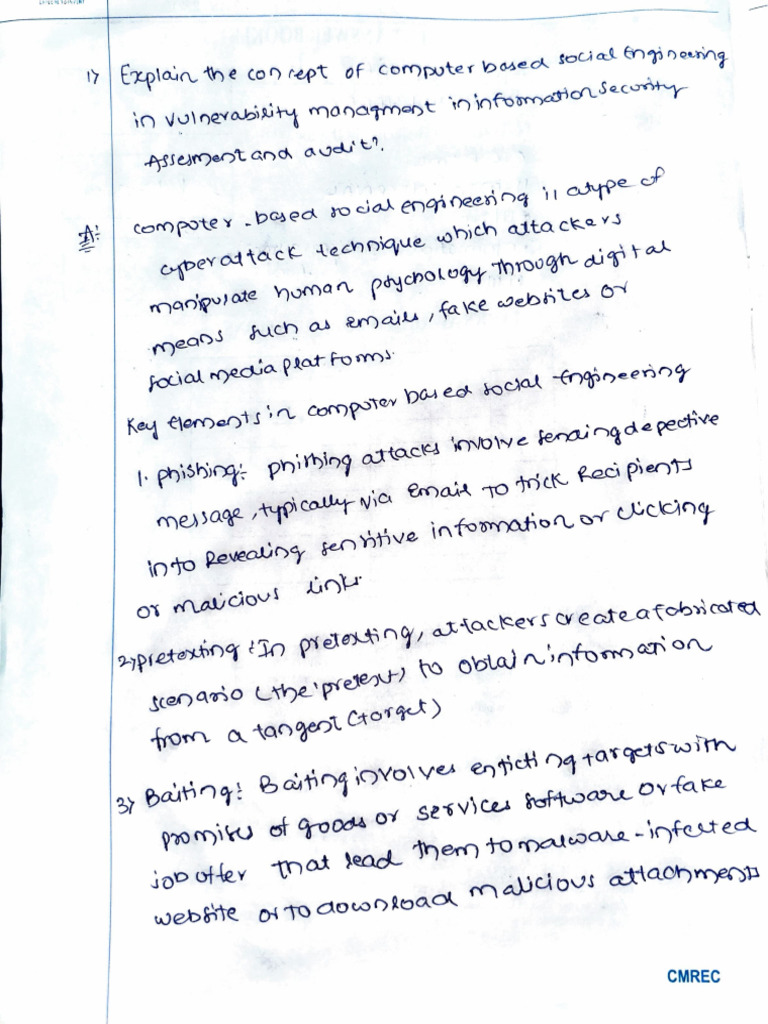 1) Explain the concept of computer based social Engineering
in vulnerability managment in information security
Assesment and audit?.
A: computer-based social engineering is a type of
cyber attack technique which attackers
manipulate human psychology through digital
means such as emails, fake websites or
social media platforms.
Key Elements in computer based social Engineering
1. phishing: phishing attacks involve sending depective
message, typically via Email to trick Recipients
into Revealing sensitive information or clicking
or malicious links.
2) pretexting: In pretexting, attackers create a fabricated
scenario (the pretext) to obtain information
from a tangent (target)
3) Baiting: Baiting involves enticting targets with
promises of goods or services software or fake
job offer that lead them to malware-infected
website or to download malicious attachments
CMREC